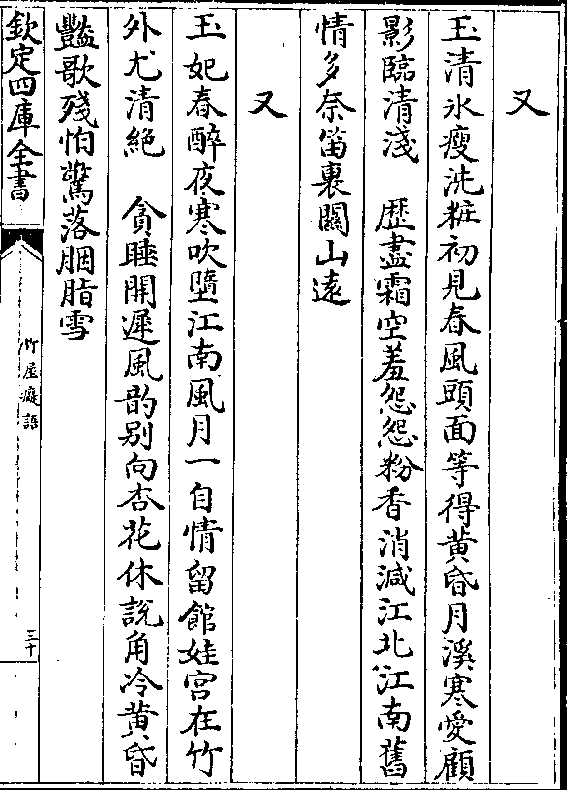 又
玉清氷瘦洗粧初見春風頭面等得黄昏月溪寒愛顧
影臨清淺　歴盡霜空羞怨怨粉香消減江北江南舊
情多奈笛裏關山遠
又
玉妃春醉夜寒吹墮江南風月一自情留館娃宫在竹
外尤清絶　貪睡開遲風韵别向杏花休說角冷黄昏
豔歌殘怕驚落胭脂雪
欽定四庫全書
竹屋癡語
三十